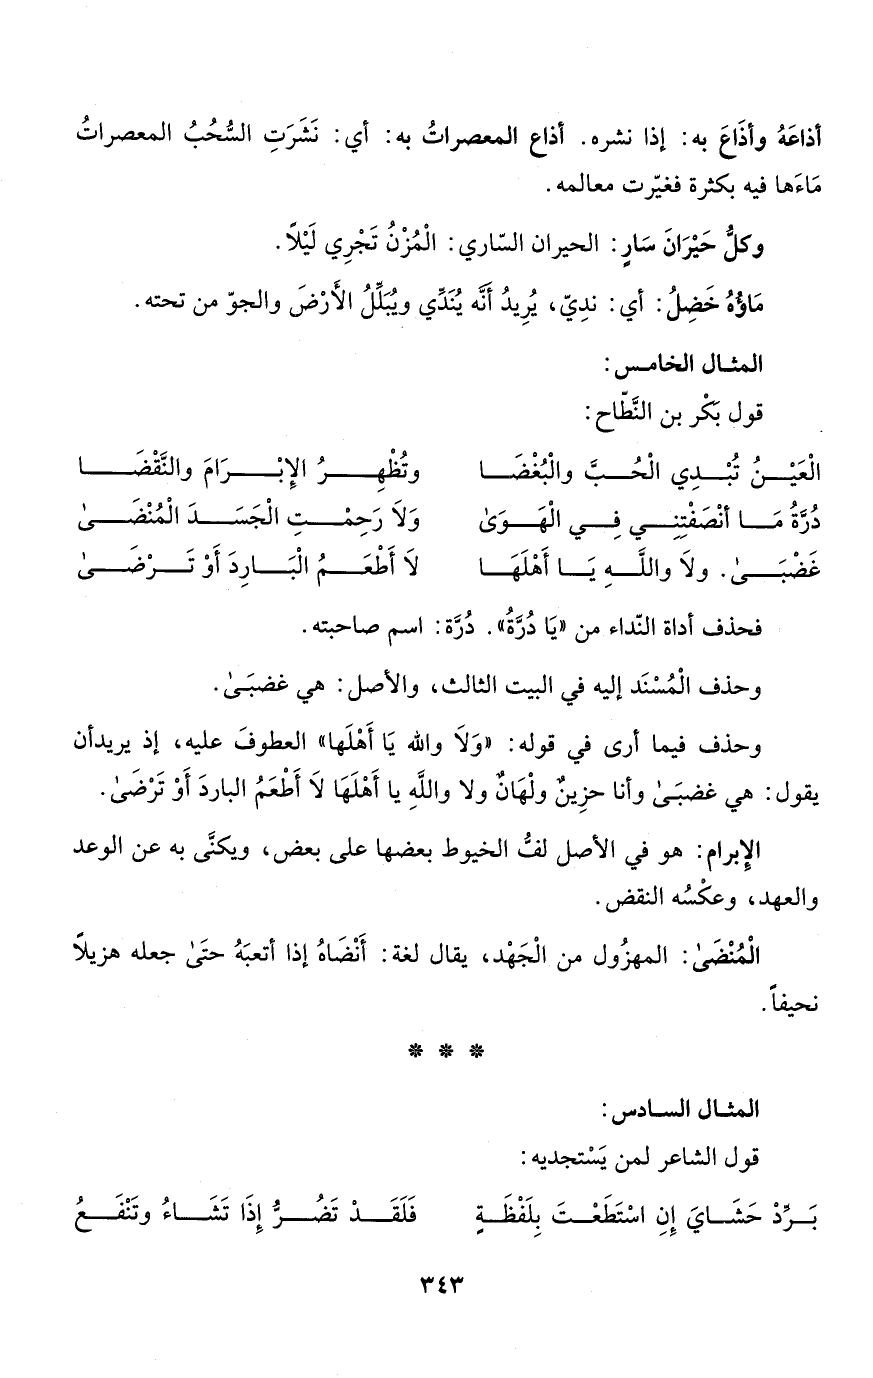 أذاعَهُ وأذَاعَ به: إذا نشره. أذاع المعصراتُ به: أي: نَشَرَتِ السُّحُبُ المعصراتُ
مَاءَها فيه بكثرة فغيّرت معالمه.
وكلُّ حَيْرَانَ سَارٍ: الحيران السّاري: الْمُزْنُ تَجْرِي لَيْلاً.
مَاؤُهُ خَضِلُ: أي: نديّ، يُرِيدُ أنَّه يُنَدِّي ويُبَلِّلُ الأَرْضَ والجوّ من تحته.
المثال الخامس:
قول بَكْر بن النَّطّاح:
الْعَيْنُ تُبْدِي الْحُبَّ والْبُغْضَا وتُظْهِرُ الإِبْرَامَ والنَّقْضَا
دُرَّةُ مَا أنْصَفْتِنِي فِي الْهَوَىٰ وَلاَ رَحِمْتِ الْجَسَدَ الْمُنْضَىٰ
غَضْبَىٰ. ولاَ واللَّهِ يَا أَهْلَهَا لاَ أَطْعَمُ الْبَارِدَ أوْ تَرْضَىٰ
فحذف أداة النّداء من «يَا دُرَّةُ». دُرَّة: اسم صاحبته.
وحذف الْمُسْنَد إليه في البيت الثالث، والأصل: هي غضبَىٰ.
وحذف فيما أرى في قوله: «وَلاَ والله يَا أَهْلَها» العطوفَ عليه، إذ يريدأن
يقول: هي غضبَىٰ وأنا حزينٌ ولْهَانٌ ولا واللَّهِ يا أَهْلَهَا لاَ أَطْعَمُ الباردَ أَوْ تَرْضَىٰ.
الإِبرام: هو في الأصل لفُّ الخيوط بعضها على بعض، ويكنَّى به عن الوعد
والعهد، وعكْسُه النقض.
الْمُنْضَىٰ: المهزُول من الْجَهْد، يقال لغة: أَنْضَاهُ إذا أتعبَهُ حتَىٰ جعله هزيلاً
نحيفاً.
* * *
المثال السادس:
قول الشاعر لمن يَسْتجديه:
بَرِّدْ حَشَايَ إِنِ اسْتَطَعْتَ بِلَفْظَةٍ فَلَقَدْ تَضُرُّ إِذَا تَشَاءُ وتَنْفَعُ
٣٤٣